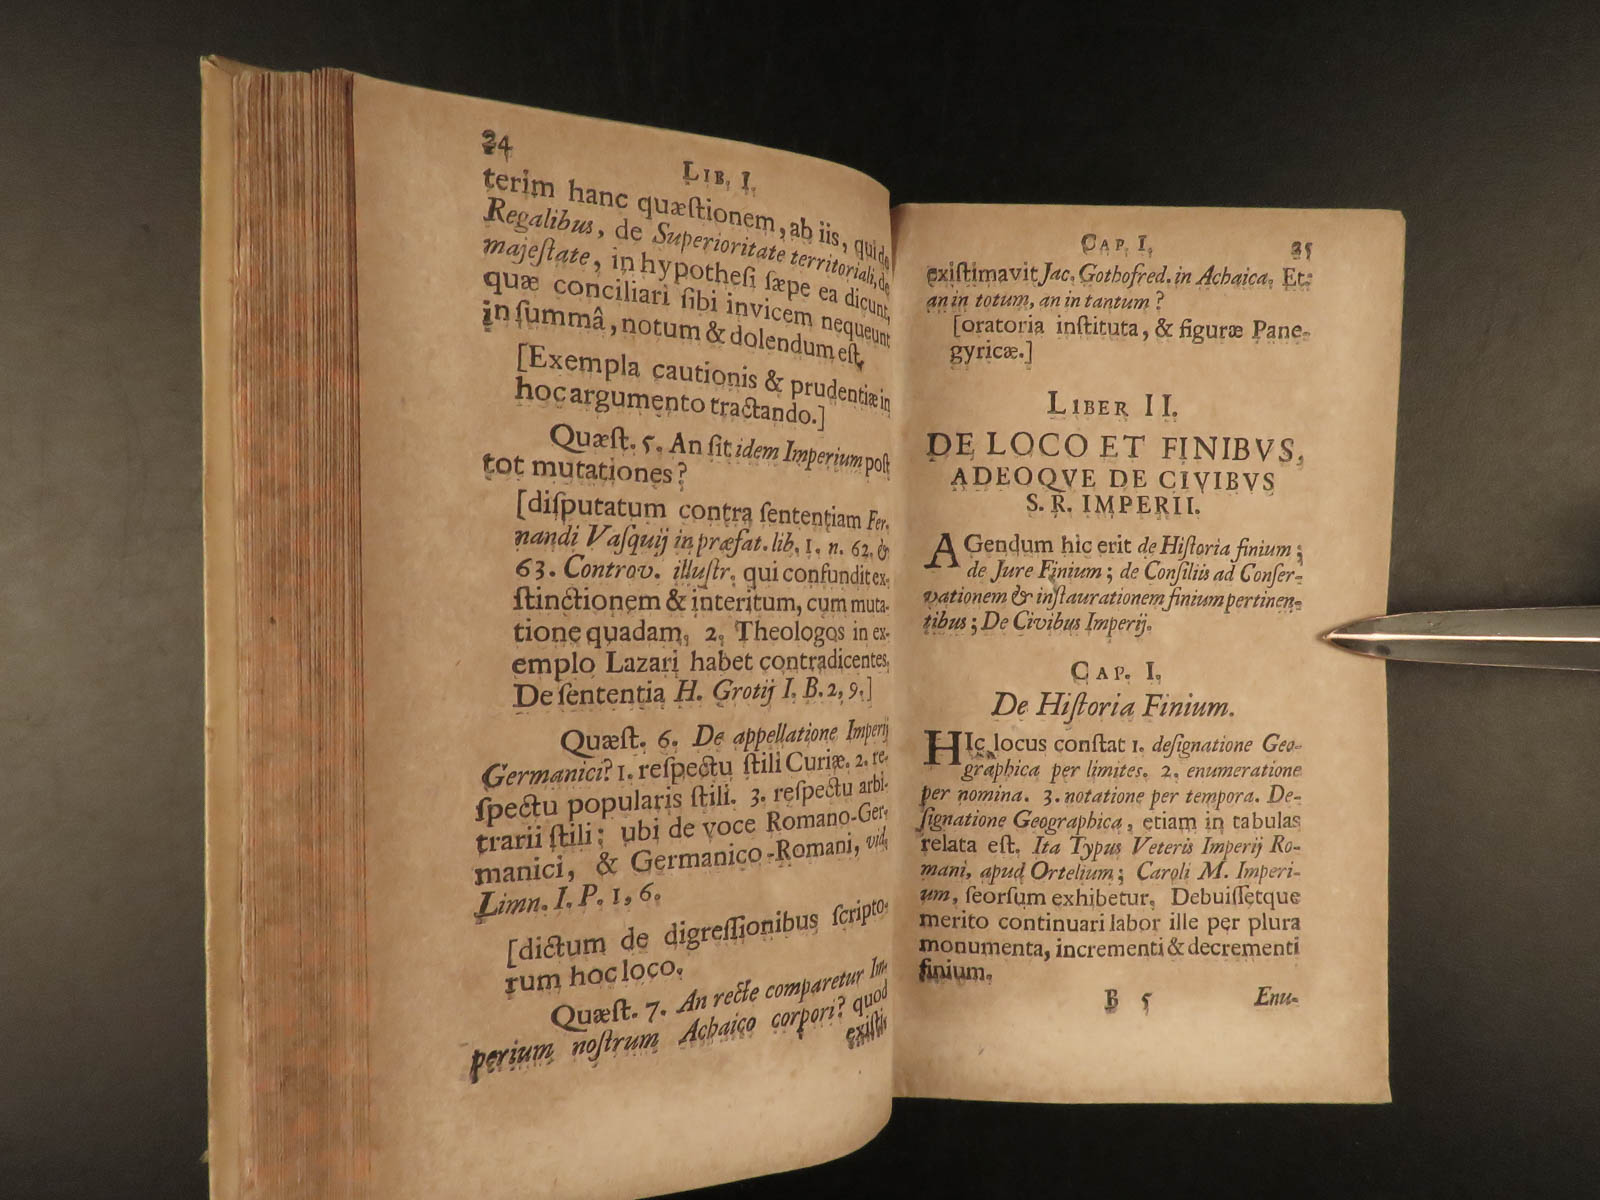 24
LIB. I.
terim hanc quæſtionem, ab iis, qui de
Regalibus, de Superioritate territoriali, de
majeſtate, in hypotheſi ſæpe ea dicunt,
quæ conciliari ſibi invicem nequeunt
in ſummâ, notum & dolendum eſt.
[Exempla cautionis & prudentiæ in
hoc argumento tractando.]
Quæſt. 5. An ſit idem Imperium poſt
tot mutationes?
[diſputatum contra ſententiam Fer-
nandi Vaſquij in præfat. lib. 1. n. 62. &
63. Controv. illuſtr. qui confundit ex-
ſtinctionem & interitum, cum muta-
tione quadam. 2. Theologos in ex-
emplo Lazari habet contradicentes.
De ſententia H. Grotij I. B. 2, 9.]
Quæſt. 6. De appellatione Imperij
Germanici? 1. reſpectu ſtili Curiæ. 2. re-
ſpectu popularis ſtili. 3. reſpectu arbi-
trarii ſtili; ubi de voce Romano-Ger-
manici, & Germanico-Romani, vid.
Limn. I. P. 1, 6.
[dictum de digreſſionibus ſcripto-
rum hoc loco.
Quæſt. 7. An recte comparetur Im-
perium noſtrum Achaico corpori? quod
exiſti-
CAP. I. 25
exiſtimavit Jac. Gothofred. in Achaica. Et
an in totum, an in tantum?
[oratoria inſtituta, & figuræ Pane-
gyricæ.]
LIBER II.
DE LOCO ET FINIBVS,
ADEOQVE DE CIVIBVS
S. R. IMPERII.
AGendum hic erit de Hiſtoria finium;
de Jure Finium; de Conſiliis ad Conſer-
vationem & inſtaurationem finium pertinen-
tibus; De Civibus Imperij.
CAP. I.
De Hiſtoria Finium.
HIc locus conſtat 1. deſignatione Geo-
graphica per limites. 2. enumeratione
per nomina. 3. notatione per tempora. De-
ſignatione Geographica, etiam in tabulas
relata eſt. Ita Typus Veteris Imperij Ro-
mani, apud Ortelium; Caroli M. Imperi-
um, ſeorſum exhibetur. Debuiſſetque
merito continuari labor ille per plura
monumenta, incrementi & decrementi
finium.
B 5 Enu-